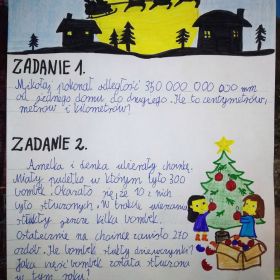 ZADANIE 1.
Mikołaj pokonał odległość 350 000 000 000 mm
od jednego domu do drugiego. Ile to centymetrów,
metrów i kilometrów?
ZADANIE 2.
Amelka i Lenka ubierały choinkę.
Miały pudełko w którym było 300
bombek. Okazało się, że 10 z nich
było stłuczonych. W trakcie wieszania
stłukły jeszcze kilka bombek.
Ostatecznie na choince zawisło 270
ozdób. Ile bombek stłukły dziewczynki?
Jaka część bombek została stłuczona
w tym roku?